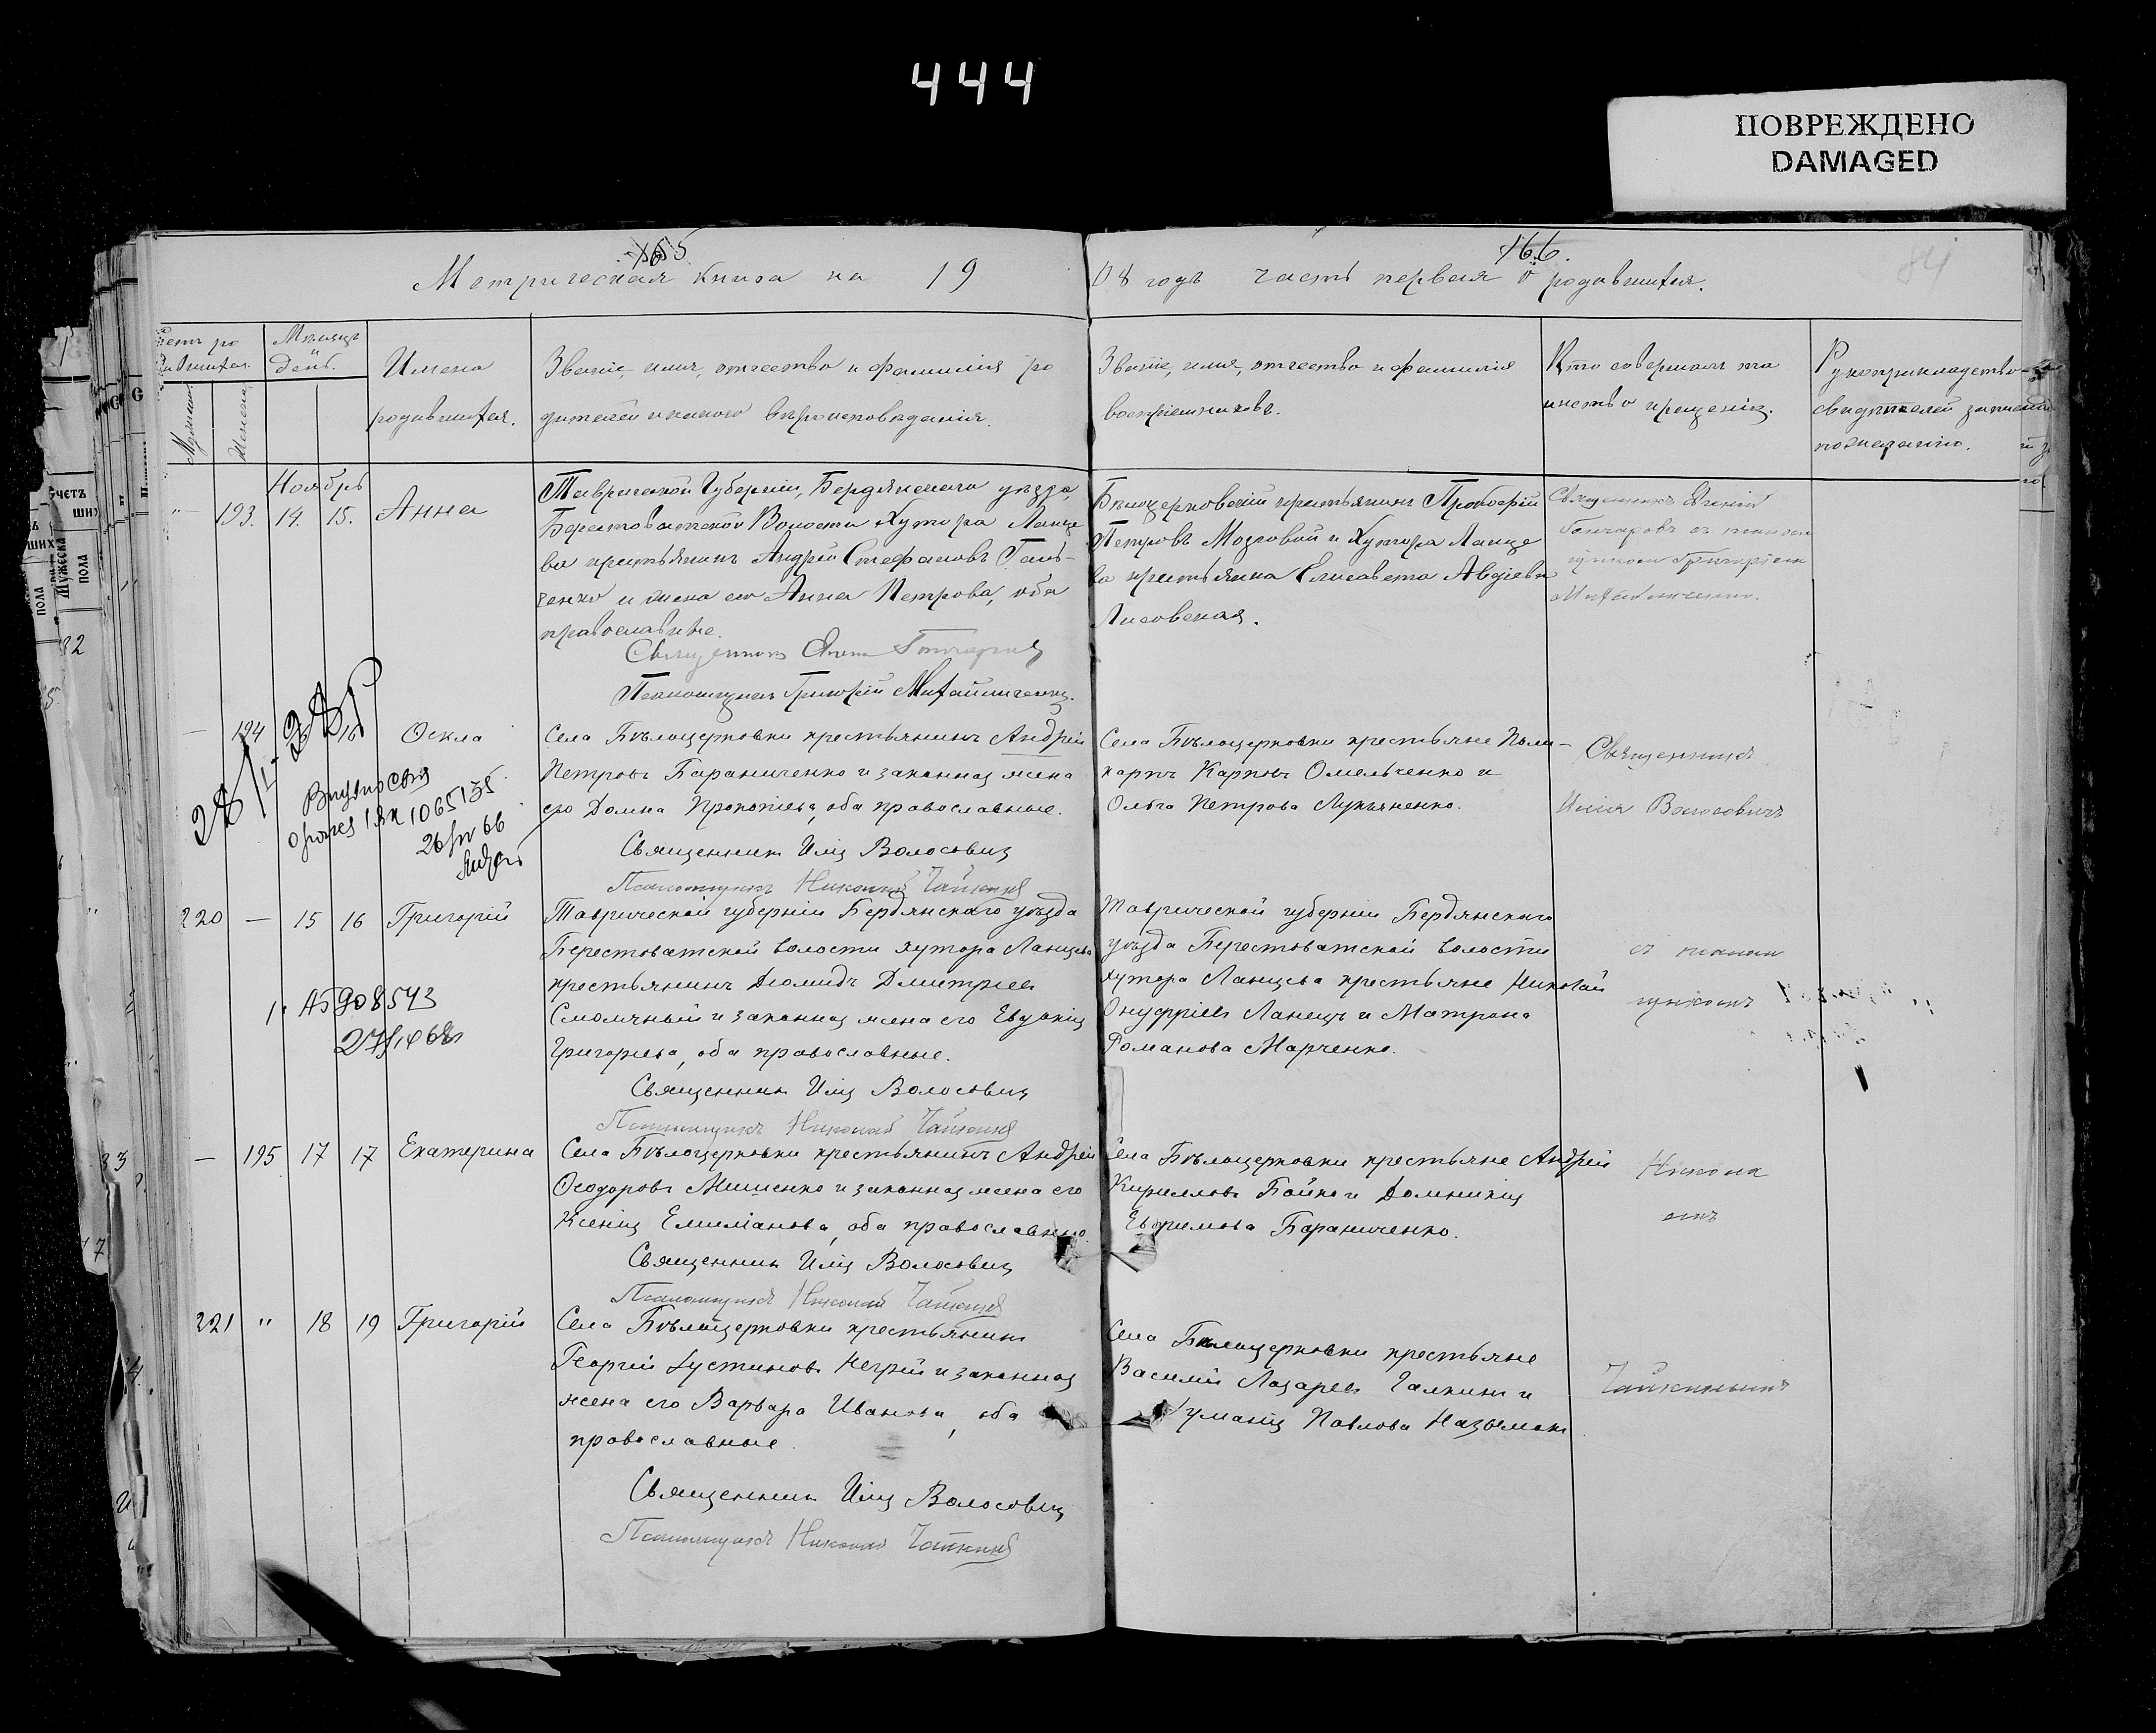 444
ПОВРЕЖДЕНО
DAMAGED
165
166.
84
Метрическая книга на 19
08 годъ часть первая о родившихся.
Счетъ родившихся.
Мужеска
Женска
Мѣсяцъ и день.
Имена родившихся.
Званіе, имя, отчество и фамилія ро
дителей и какого вѣроисповѣданія.
Званіе, имя, отчество и фамилія
воспріемниковъ.
Кто совершалъ та
инство крещенія.
Рукоприкладство
свидѣтелей записи
по желанію.
Ноябрь
193. 14. 15. Анна
Таврической Губерніи, Бердянскаго уѣзда,
Берестоватской Волости Хутора Ланце
ва крестьянинъ Андрей Стефановъ Галь-
ченко и жена его Анна Петрова, оба
православные.
Священникъ
Псаломщикъ Григорій Михайличенко.
Бѣлоцерковскій крестьянинъ Прокофій
Петровъ Мозговой и Хутора Ланце
ва крестьянка Елисавета Авдіева
Лисовская.
Священникъ
Гончаровъ съ псалом
щикомъ Григоріемъ
Михайличенко.
— 194 16 Ѳекла
Села Бѣлоцерковки крестьянинъ Андрей
Петровъ Бараниченко и законная жена
его Домна Прокопіева, оба православные.
Священникъ Илія Волосовичъ
Псаломщикъ Николай Чайкинъ
Села Бѣлоцерковки крестьяне Поли-
карпъ Карповъ Омельченко и
Ольга Петрова Лукьяненко.
Священникъ
Илія Волосовичъ
1065135
26 66
220 — 15 16 Григорій
Таврической губерніи Бердянскаго уѣзда
Берестоватской волости хутора Ланцева
крестьянинъ Діомидъ Дмитріевъ
Смолчный и законная жена его Евдокія
Григорьева, оба православные.
Священникъ Илія Волосовичъ
Псаломщикъ Николай Чайкинъ
Таврической губерніи Бердянскаго
уѣзда Берестоватской волости
хутора Ланцева крестьяне Николай
Онуфріевъ Ланецъ и Матрона
Романова Марченко.
съ псалом
щикомъ
908543
— 195 17 17 Екатерина
Села Бѣлоцерковки крестьянинъ Андрей
Ѳеодоровъ Мишенко и законная жена его
Ксенія Емиліанова, оба православные.
Священникъ Илія Волосовичъ
Псаломщикъ Николай Чайкинъ
Села Бѣлоцерковки крестьяне Андрей
Кирилловъ Бойко и Домникія
Евфимова Бараниченко.
Никола
емъ
221 " 18 19 Григорій
Села Бѣлоцерковки крестьянинъ
Георгій Іустиновъ Негрій и законная
жена его Варвара Иванова, оба
православные.
Священникъ Илія Волосовичъ
Псаломщикъ Николай Чайкинъ
Села Бѣлоцерковки крестьяне
Василій Лазаревъ Галкинъ и
Павлова
Чайкинымъ